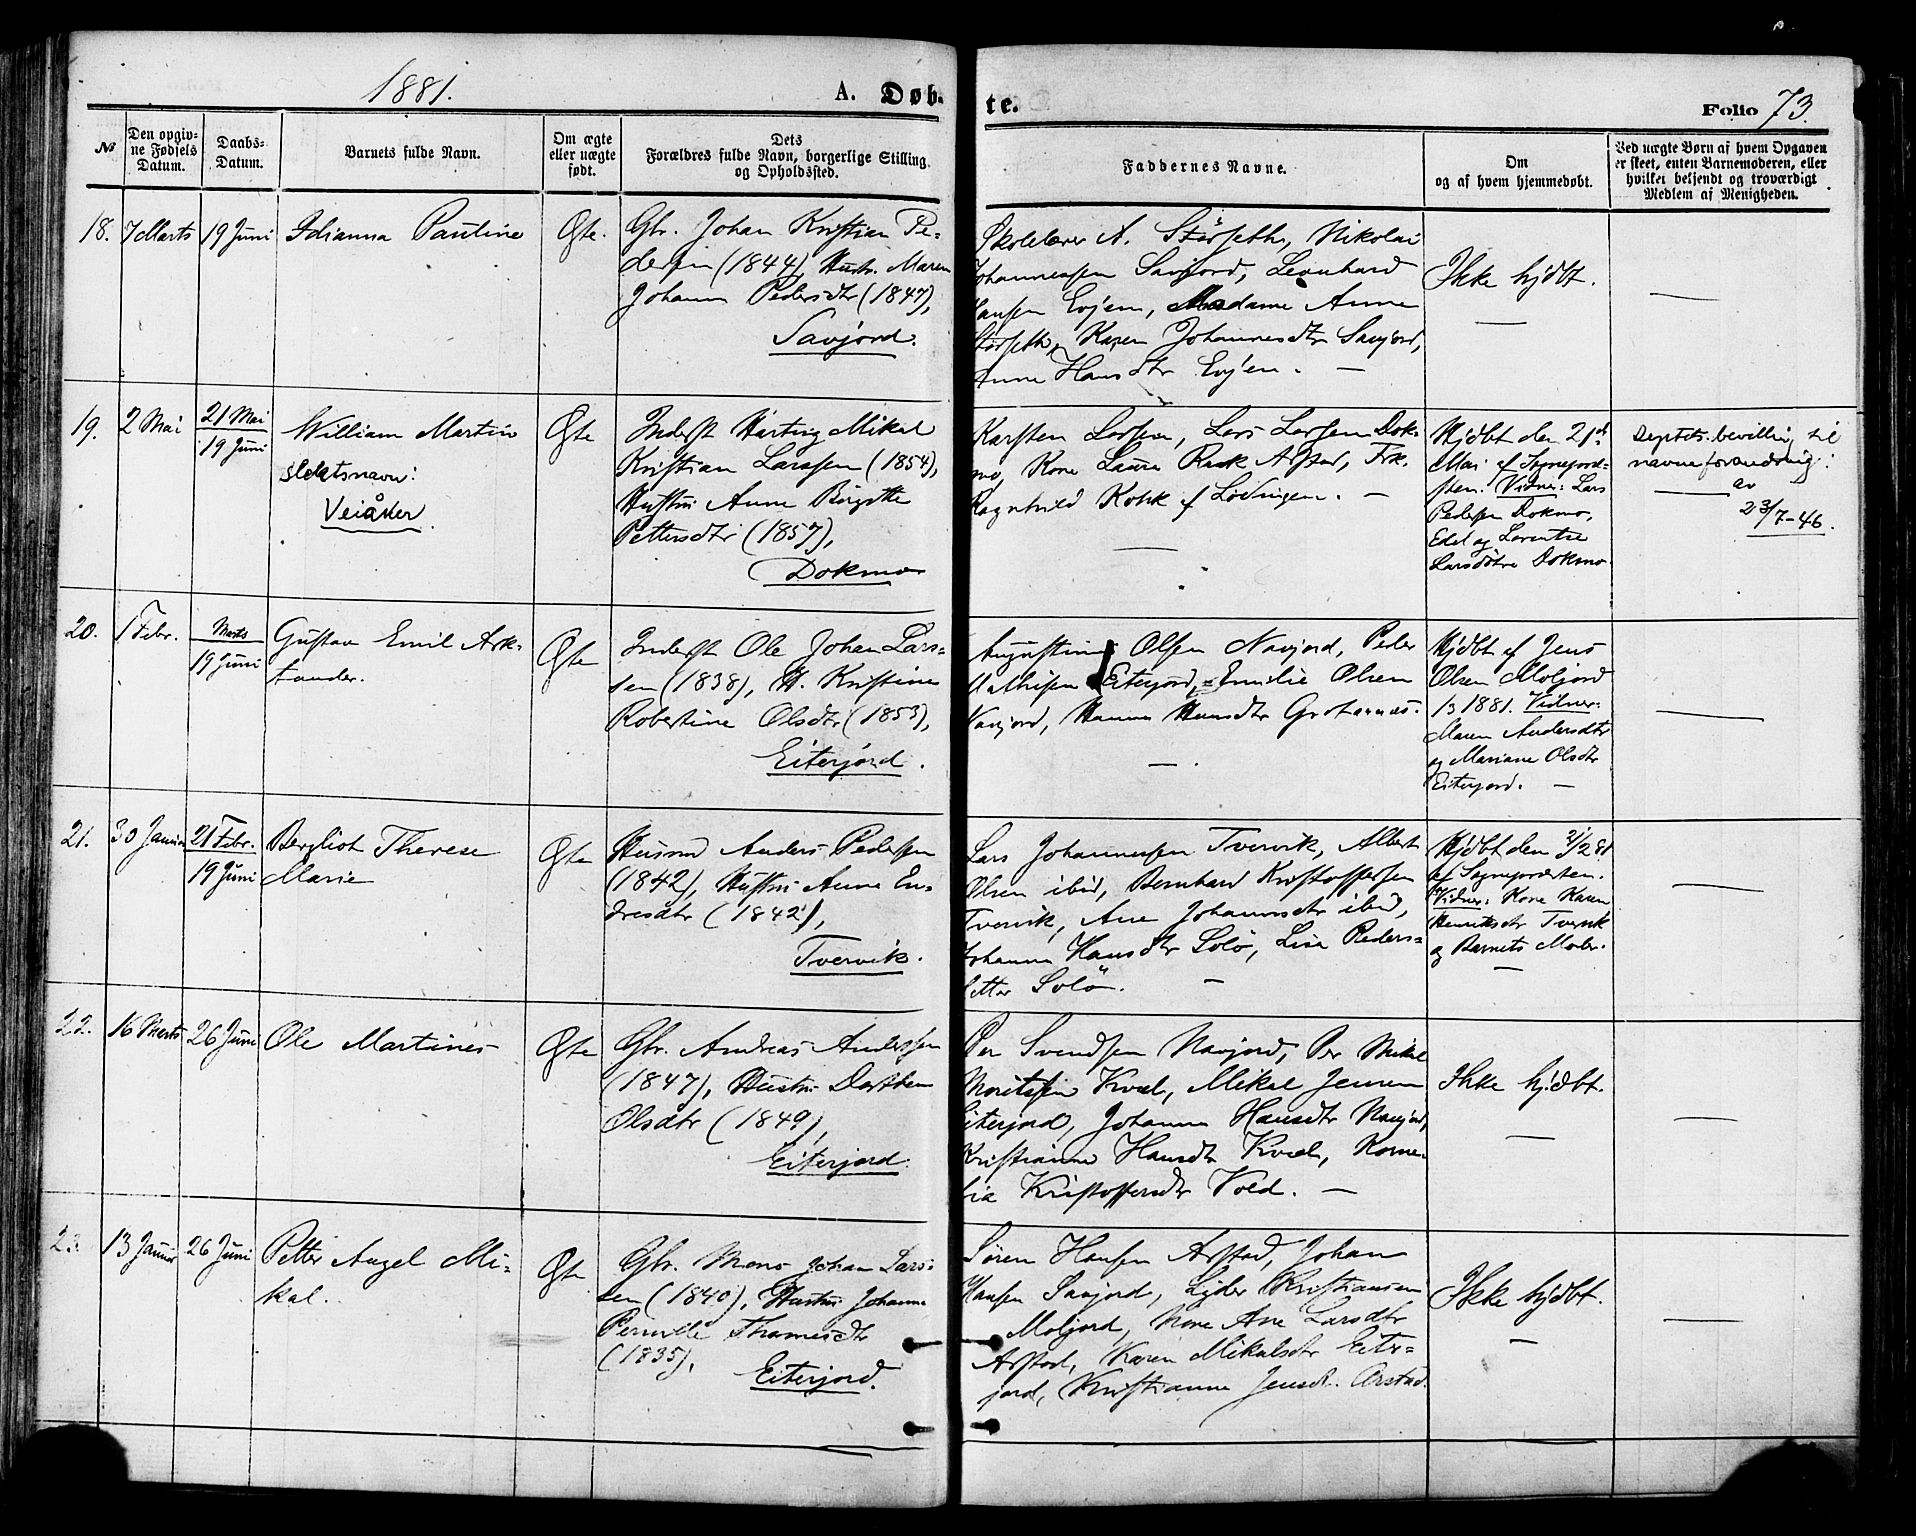 1881.
A. Døb-
te.
Folio 73.
№
Den opgiv-
ne Fødsels
Datum.
Daabs-
Datum.
Barnets fulde Navn.
Om ægte
eller uægte
født.
Dets
Forældres fulde Navn, borgerlige Stilling
og Opholdssted.
Faddernes Navne.
Om
og af hvem hjemmedøbt.
Ved uægte Børn af hvem Opgaven
er skeet, enten Barnemoderen, eller
hvilket bekjendt og troværdigt
Medlem af Menigheden.
18.
7 Marts
19 Juni
Idianna Pauline
Ægte.
Gbr. Johan Kristian Pe-
dersen (1844), Hustr. Maren
Johanna Pedersdtr (1847),
Savjord.
Skolelærer A. Störseth, Nikolai
Johannessen Savjord, Leonhard
Hansen Evjen, Madame Anna
Störseth, Karen Johannesdtr Savjord,
Anne Hansdtr Evjen. —
Ikke hjdbt.
—
—
19.
2 Mai
21 Mai
19 Juni
William Martin
slektsnavn:
Veiåker
Ægte
Inderst Hartvig Mikal
Kristian Larssen (1854),
Hustru Anne Birgitte
Pettersdtr (1857),
Dokmo
Karsten Larsen, Lars Larsen Dok-
mo, Kone Laura Rask Arstad, Frk.
Ragnhild Kokk af Lødingen. —
—
Hjdbt den 21de
Mai af Sognepræ-
sten. Vidner: Lars
Pedersen Dokmo,
Edel og Lorentze
Larsdøtre Dokmo.
Deptets. bevilling til
navneforandring:
— av
23/7-46.
20.
1 Febr.
Marts
19 Juni
Gustav Emil Ark-
tander.
Ægte
Inderst Ole Johan Lars-
sen (1838), H. Kristine
Robertine Olsdtr (1853),
Eiterjord.
Augustinus Olsen Navjord, Peder
Mathisen Eiterjord, Emilie Olsen
Navjord, Hanna Hansdtr Grotannes.
—
Hjdbt af Jens
Olsen Moljord
1881. Vidner:
Maren Andersdtr
og Mariane Olsdtr
Eiterjord. —
—
21.
30 Januar
21 Febr.
19 Juni
Bergliot Therese
Marie
Ægte
Husmd Anders Pedersen
(1842), Hustru Anne En-
dresdtr (1842),
Tvervik.
Lars Johannessen Tvervik, Albert
Olsen ibid, Bernhard Kristoffersen
Tvervik, Ane Johannsdtr ibid,
Johanna Hansdtr Solö, Lisa Peders-
datter Solö. —
Hjdbt den 21/2 81
af Sognepræsten.
Vidner: Kone Karen
Henriksdtr Tvervik
og Barnets Moder.
—
—
22.
16 Marts
26 Juni
Ole Martines
Ægte
Gbr. Andreas Anderssen
(1847), Hustru Dorthea
Olsdtr (1849),
Eiterjord.
Per Svendsen Navjord, Per Mikal
Moritssen Kvæl, Mikal Jensen
Eiterjord, Johanna Hansdtr Navjord,
Kristianna Hansdtr Kvæl, Korne-
lia Kristoffersdtr Vold. —
Ikke hjdbt.
—
—
23.
13 Januar
26 Juni
Petter Angel Mi-
kal.
Ægte
Gbr. Mons Johan Lars-
sen (1840), Hustru Johanna
Pernille Thomesdtr
(1835),
Eiterjord.
Søren Hansen Arstad, Johan
Hansen Savjord, Lyder Kristiansen
Moljord, Kone Ane Larsdtr
Arstad, Karen Mikalsdtr Eiter-
jord, Kristianne Jensd. Arstad.
Ikke hjdbt.
—
—